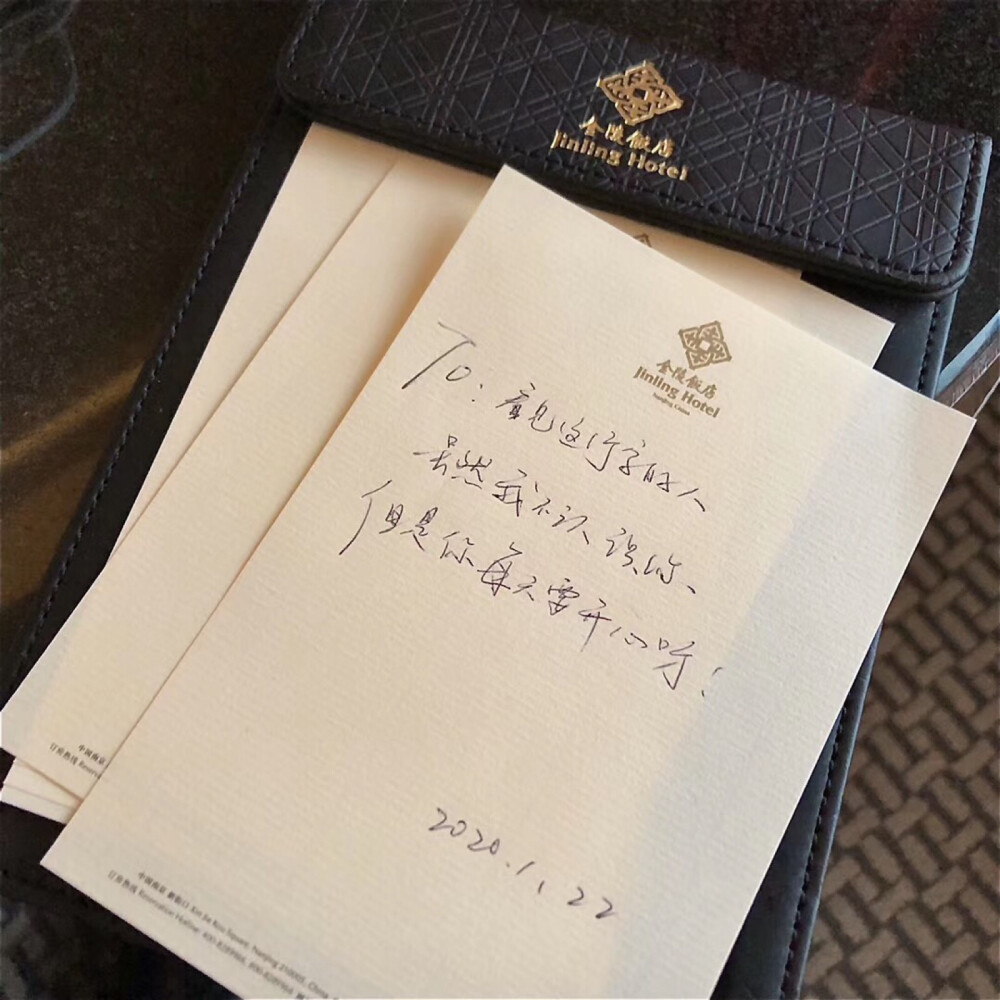 金陵飯店
Jinling Hotel
金陵飯店
Jinling Hotel
Nanjing, China
To：看见这行字的人
虽然我不认识你、
但是你每天要开心呀！
2020.1.22
中国南京
订房热线 Reservation
中国南京 新街口 Xin Jie Kou Square, Nanjing 210005, China
订房热线 Reservation Hotline: